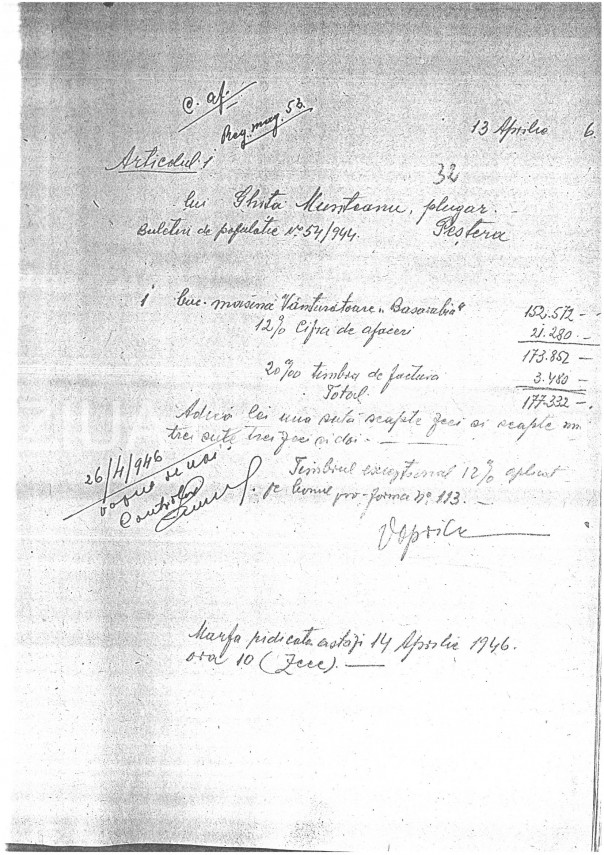 C. af.
Reg. mag. 53.
13 Aprilie 6.
Articolul 1
32
lui Ghita Munteanu, plugar.
Buletin de populatie No 54/944. Peștera
1 buc. masină Vânturătoare „Basarabia" 152.572 —
12% Cifra de afaceri 21.280 —
173.852 —
20%00 timbru de factura 3.480 —
Total 177.332 —
Adică lei una sută șeapte zeci si șeapte mii
trei sute trei zeci si doi. —
26/4/946
Timbrul excepțional 12% aplicat
Control
pe bonul pro-forma No 113. —
Marfa ridicata astăzi 14 Aprilie 1946.
ora 10 (Zece). —